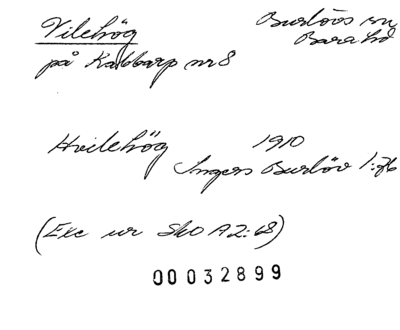 Vilehög
Burlövs sn
Bara hd
på Kabbarp nr 8
Hvilehög 1910
Ingers Burlöv 1:76
(Exc ur SkO A2:68)
00032899